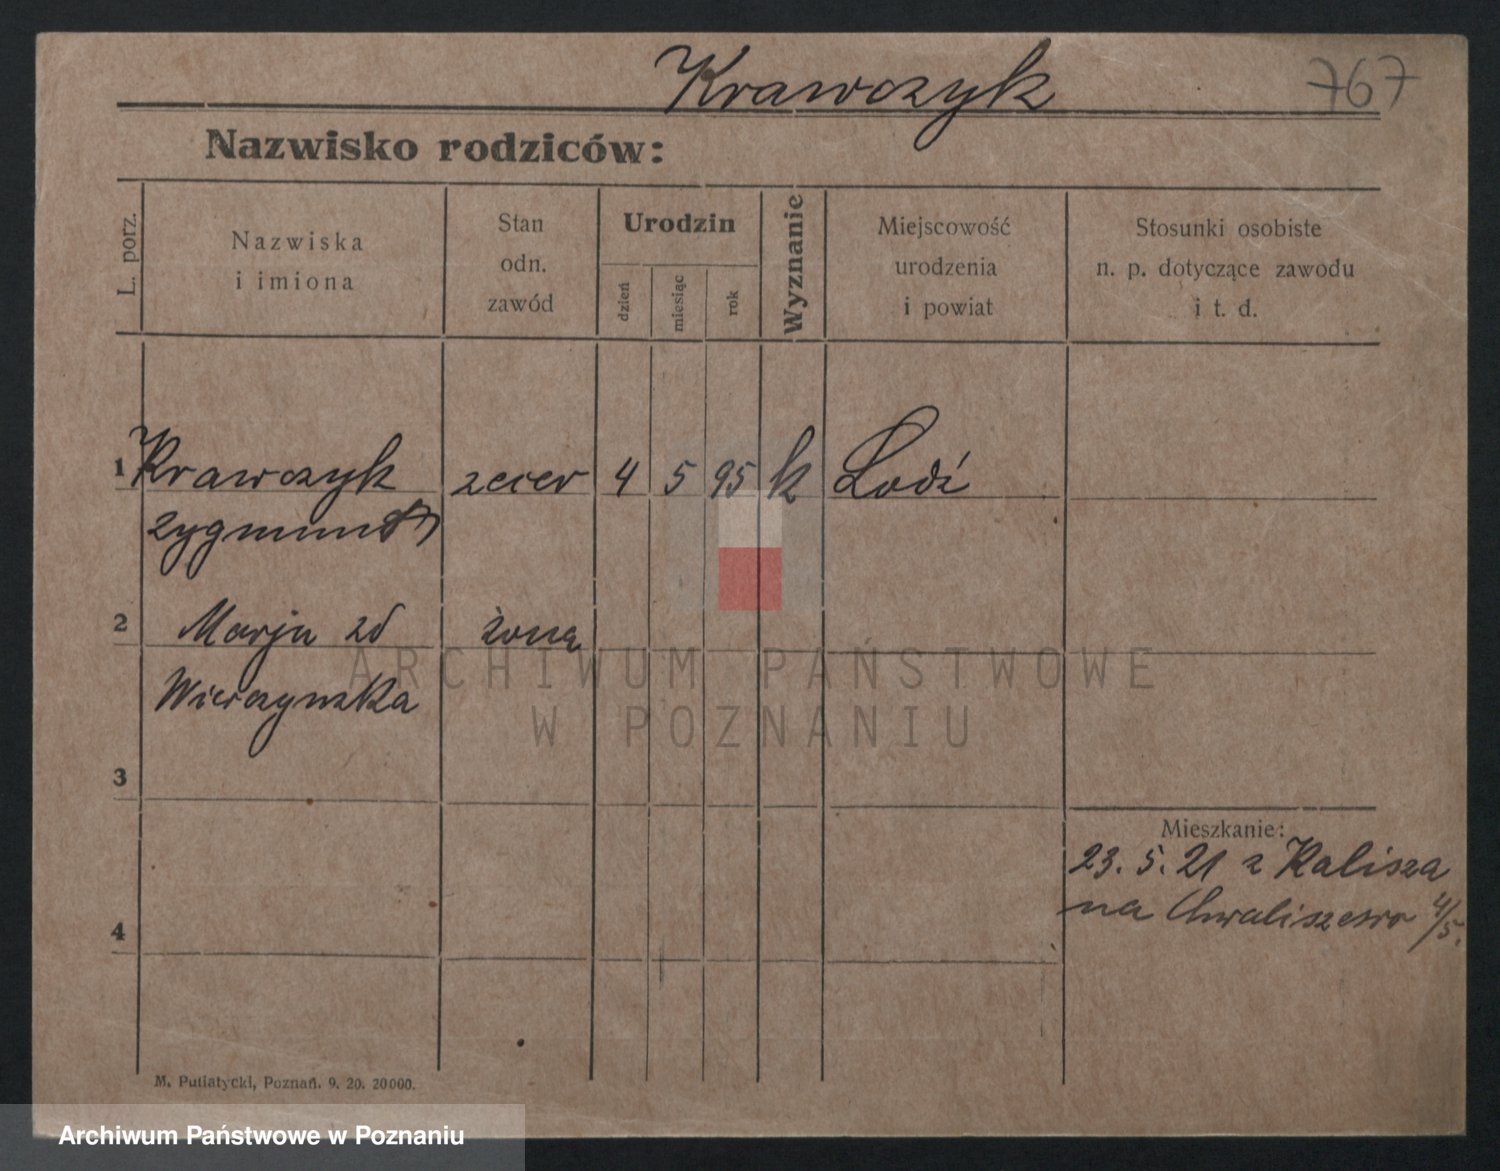 Krawczyk
767
Nazwisko rodziców:
L. porz.
Nazwiska
i imiona
Stan
odn.
zawód
Urodzin
dzień
miesiąc
rok
Wyznanie
Miejscowość
urodzenia
i powiat
Stosunki osobiste
n. p. dotyczące zawodu
i t. d.
1 Krawczyk zecer 4 5 95 k Łodź
Zygmunt
2 Marja zd żona
Wierzynska
3
Mieszkanie:
23. 5. 21 z Kalisza
na Chwaliszewo 4/5.
4
M. Putiatycki, Poznań. 9. 20. 20000.
ARCHIWUM PAŃSTWOWE
W POZNANIU
Archiwum Państwowe w Poznaniu